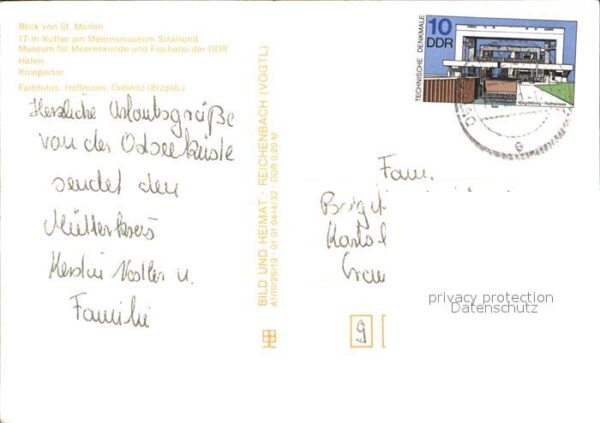 Blick von St. Marien
17-m-Kutter am Meeresmuseum Stralsund
Museum für Meereskunde und Fischerei der DDR
Hafen
Kniepertor
Farbfotos: Hoffmann, Oelsnitz (Erzgeb.)
Herzliche Urlaubsgrüße
von der Ostseeküste
sendet den
Mütterkreis
Kerstin u.
Familie
BILD UND HEIMAT · REICHENBACH (VOGTL)
A1/III/26/13 · 01 01 0414/32 · DDR 0,20 M
TECHNISCHE DENKMALE
10
DDR
Magdeburg-Rothensee
e
Fam.
9
privacy protection
Datenschutz